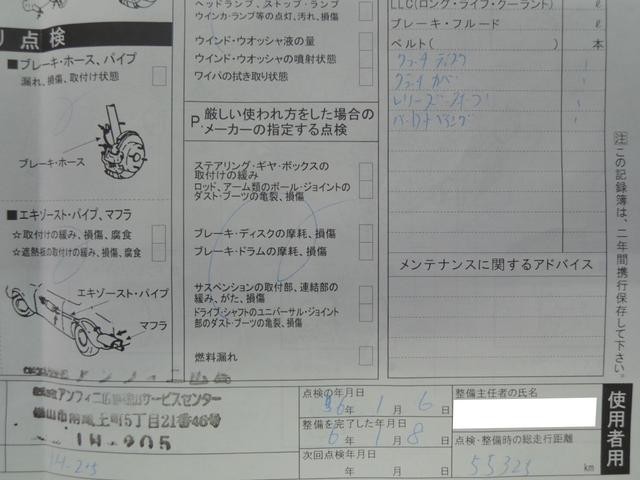 ヘッドランプ、ストップ・ランプ
ウインカ・ランプ等の点灯、汚れ、損傷
ウインド・ウオッシャ液の量
ウインド・ウオッシャの噴射状態
ワイパの拭き取り状態
点検
■ブレーキ・ホース、パイプ
漏れ、損傷、取付け状態
ブレーキ・ホース
■エキゾースト・パイプ、マフラ
☆取付けの緩み、損傷、腐食
☆遮熱板の取付けの緩み、損傷、腐食
エキゾースト・パイプ
マフラ
P 厳しい使われ方をした場合の
メーカーの指定する点検
ステアリング・ギヤ・ボックスの
取付けの緩み
ロッド、アーム類のボール・ジョイントの
ダスト・ブーツの亀裂、損傷
ブレーキ・ディスクの摩耗、損傷
ブレーキ・ドラムの摩耗、損傷
サスペンションの取付部、連結部の
緩み、がた、損傷
ドライブ・シャフトのユニバーサル・ジョイント
部のダスト・ブーツの亀裂、損傷
燃料漏れ
LLC(ロング・ライフ・クーラント) ℓ
ブレーキ・フルード ℓ
ベルト( ) 本
クラッチディスク
クラッチカバー
メンテナンスに関するアドバイス
注 この記録簿は、二年間携行保存して下さい。
サービスセンター
上町5丁目21番46号
1H-205
1H-205
点検の年月日
年 1月 6日
整備を完了した年月日
6年 1月 8日
次回点検年月日
年 月 日
整備主任者の氏名
点検・整備時の総走行距離
55323 km
使用者用